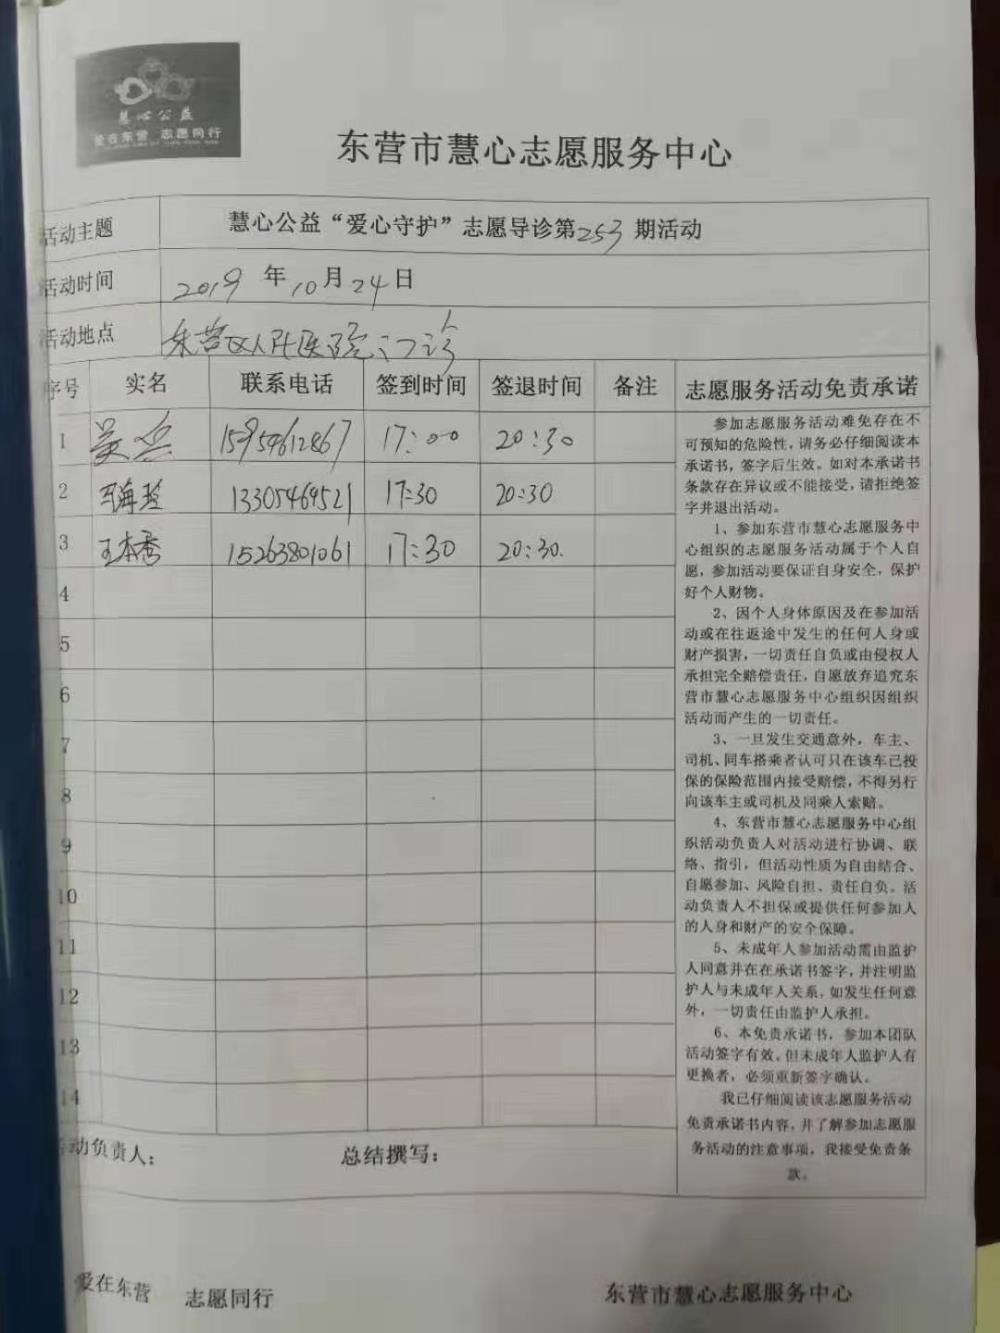 慧心公益
爱在东营 志愿同行
东营市慧心志愿服务中心
活动主题 慧心公益“爱心守护”志愿导诊第253期活动
活动时间 2019年10月24日
活动地点 东营区人民医院门诊
序号 实名 联系电话 签到时间 签退时间 备注 志愿服务活动免责承诺
1 吴兵 15954612867 17:00 20:30
2 王海玲 13305469521 17:30 20:30
3 王本秀 15263801061 17:30 20:30.
4
5
6
7
8
9
10
11
12
13
14
参加志愿服务活动难免存在不
可预知的危险性,请务必仔细阅读本
承诺书,签字后生效。如对本承诺书
条款存在异议或不能接受,请拒绝签
字并退出活动。
1、参加东营市慧心志愿服务中
心组织的志愿服务活动属于个人自
愿,参加活动要保证自身安全,保护
好个人财物。
2、因个人身体原因及在参加活
动或在往返途中发生的任何人身或
财产损害,一切责任自负或由侵权人
承担完全赔偿责任,自愿放弃追究东
营市慧心志愿服务中心组织因组织
活动而产生的一切责任。
3、一旦发生交通意外,车主、
司机、同车搭乘者认可只在该车已投
保的保险范围内接受赔偿,不得另行
向该车主或司机及同乘人索赔。
4、东营市慧心志愿服务中心组
织活动负责人对活动进行协调、联
络、指引,但活动性质为自由结合、
自愿参加、风险自担、责任自负。活
动负责人不担保或提供任何参加人
的人身和财产的安全保障。
5、未成年人参加活动需由监护
人同意并在在承诺书签字,并注明监
护人与未成年人关系,如发生任何意
外,一切责任由监护人承担。
6、本免责承诺书,参加本团队
活动签字有效。但未成年人监护人有
更换者,必须重新签字确认。
我已仔细阅读该志愿服务活动
免责承诺书内容,并了解参加志愿服
务活动的注意事项,我接受免责条
款。
活动负责人: 总结撰写:
爱在东营 志愿同行 东营市慧心志愿服务中心